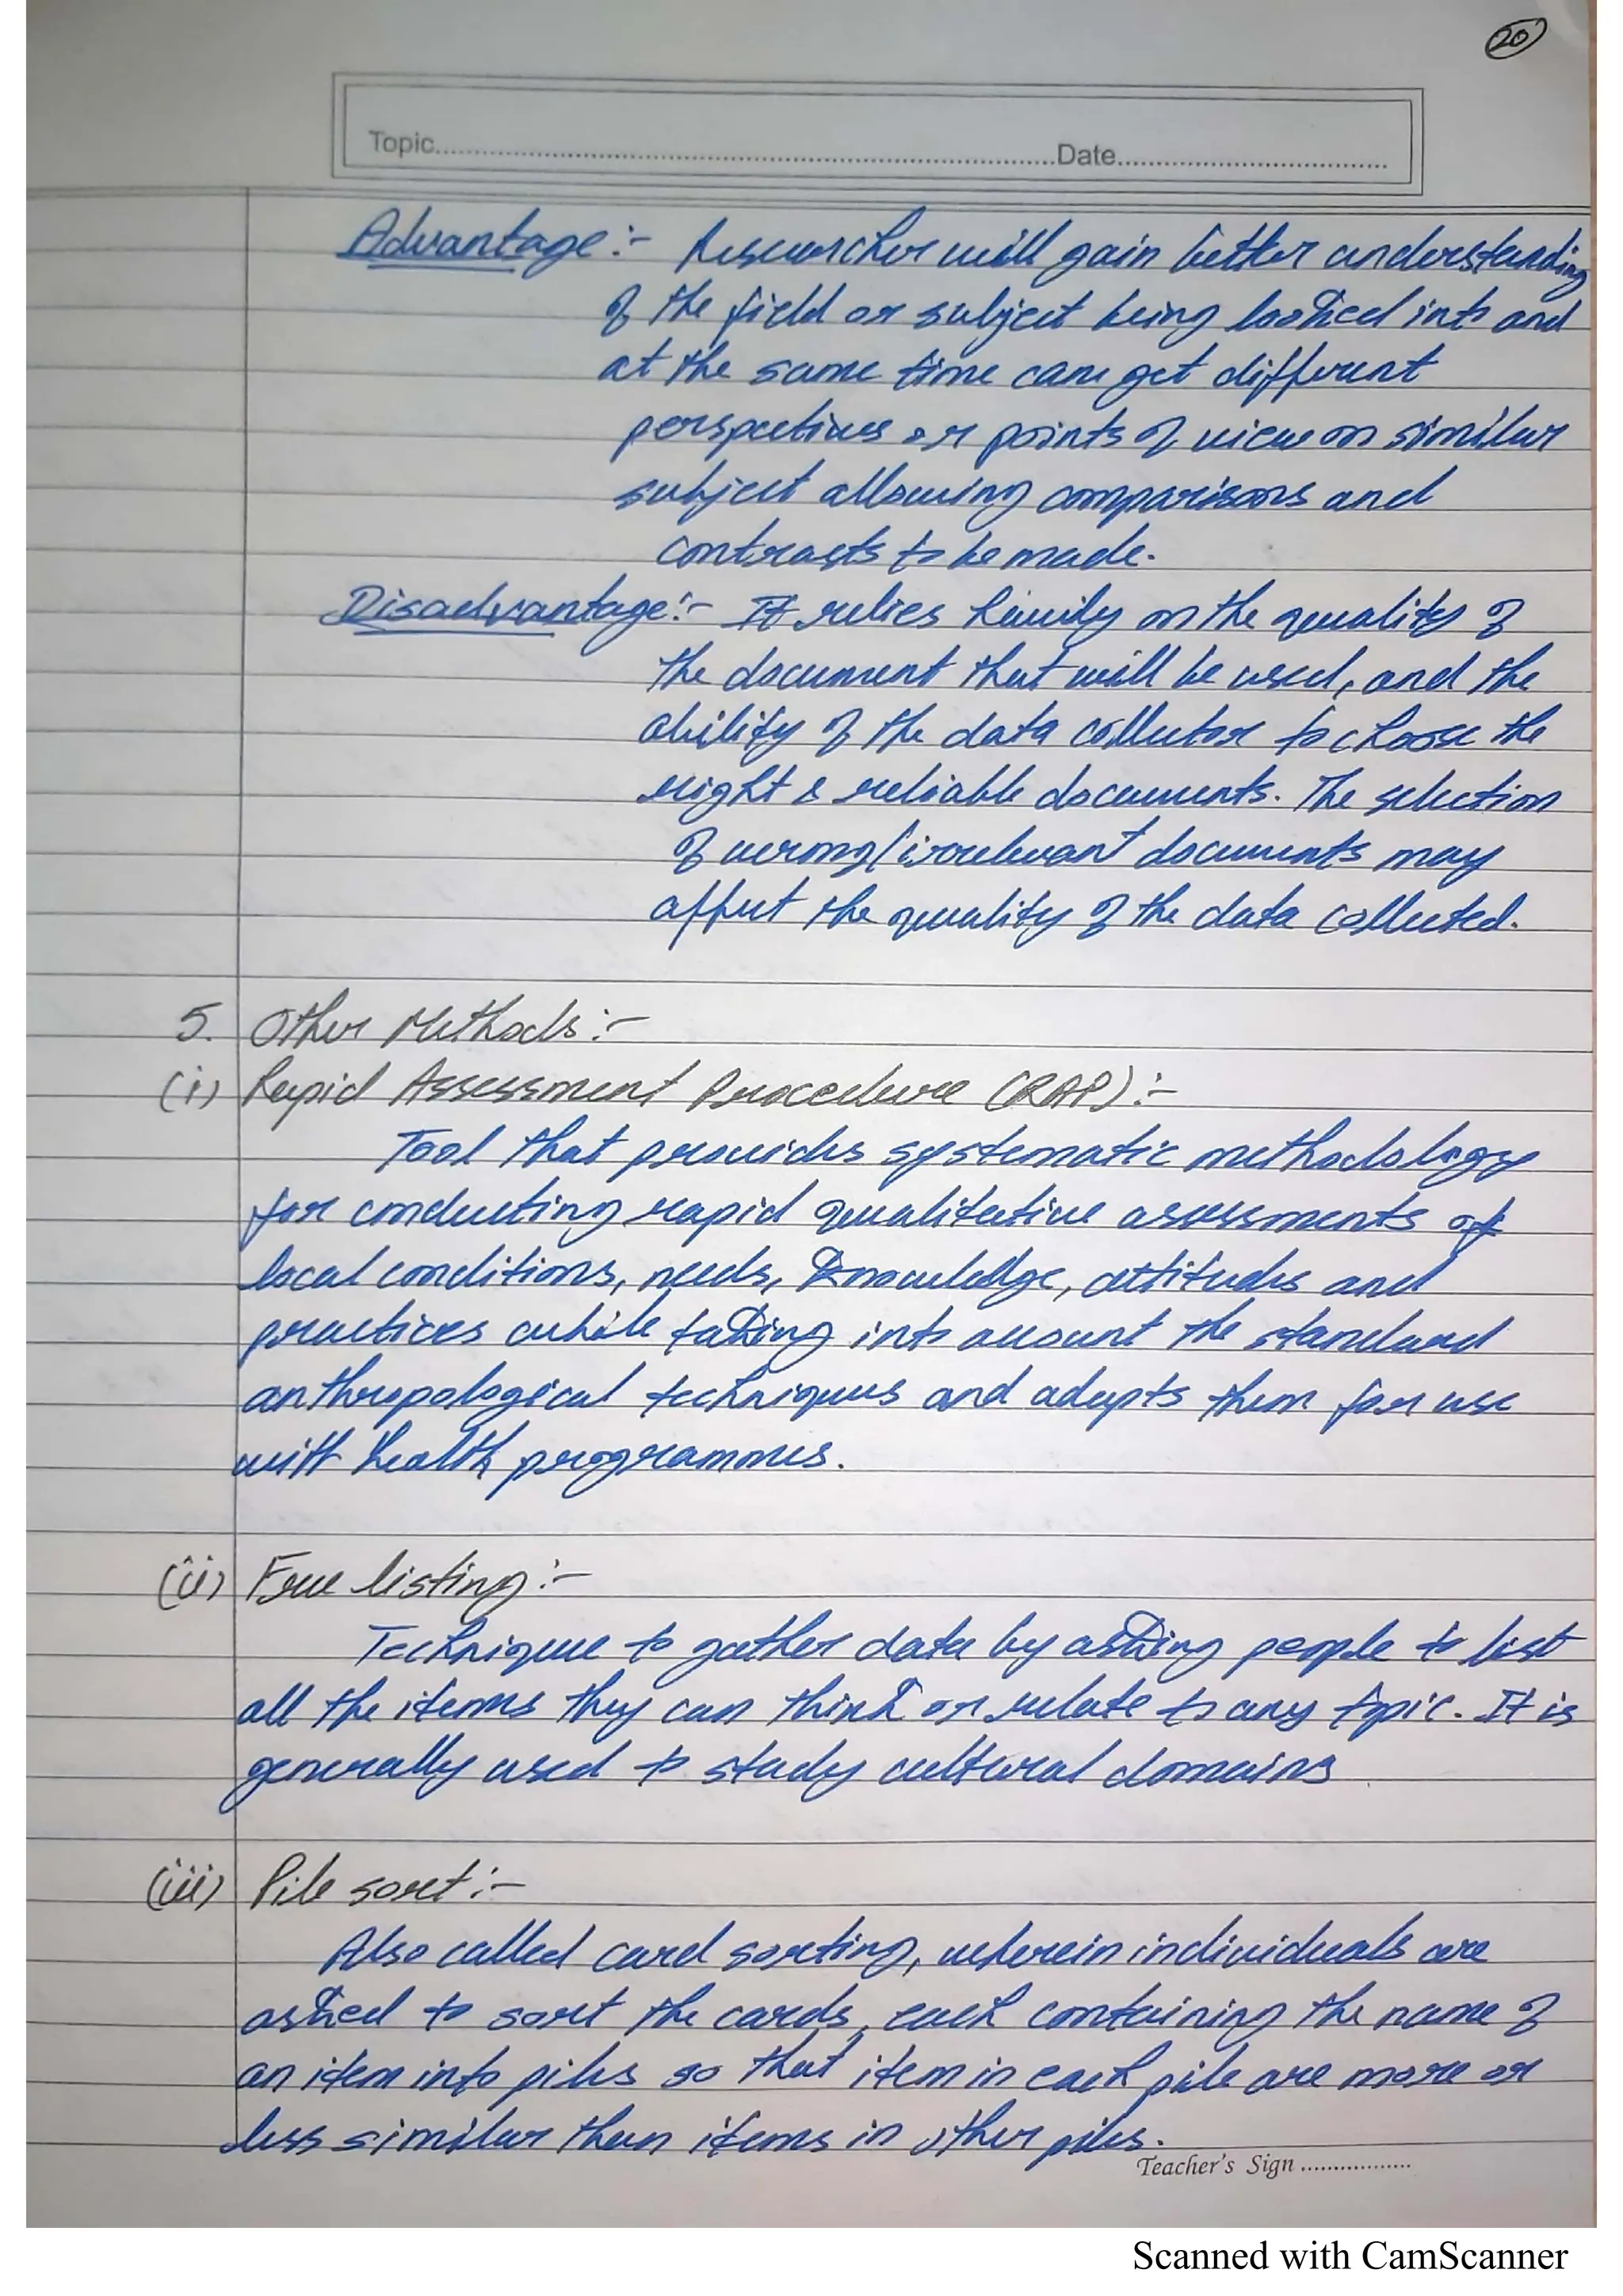 20
Topic..........Date..........
Advantage:- Researcher will gain better understanding
of the field or subject being looked into and
at the same time can get different
perspectives or points of view on similar
subject allowing comparisons and
contrasts to be made.
Disadvantage:- It relies heavily on the quality of
the document that will be used, and the
ability of the data collector to choose the
right & reliable documents. The selection
of wrong/irrelevant documents may
affect the quality of the data collected.
5. Other Methods:-
(i) Rapid Assessment Procedure (RAP):-
Tool that provides systematic methodology
for conducting rapid qualitative assessments of
local conditions, needs, knowledge, attitudes and
practices while taking into account the standard
anthropological techniques and adapts them for use
with health programmes.
(ii) Free listing:-
Technique to gather data by asking people to list
all the items they can think or relate to any topic. It is
generally used to study cultural domains
(iii) Pile sort:-
Also called card sorting, wherein individuals are
asked to sort the cards, each containing the name of
an item into piles so that item in each pile are more or
less similar than items in other piles.
Teacher's Sign ..........
Scanned with CamScanner